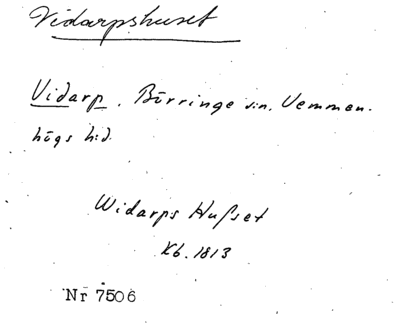 Vidarpshuset
Vidarp. Börringe sn. Vemmen-
högs hd.
Widarps Hufset
Kb. 1813
Nr 7506